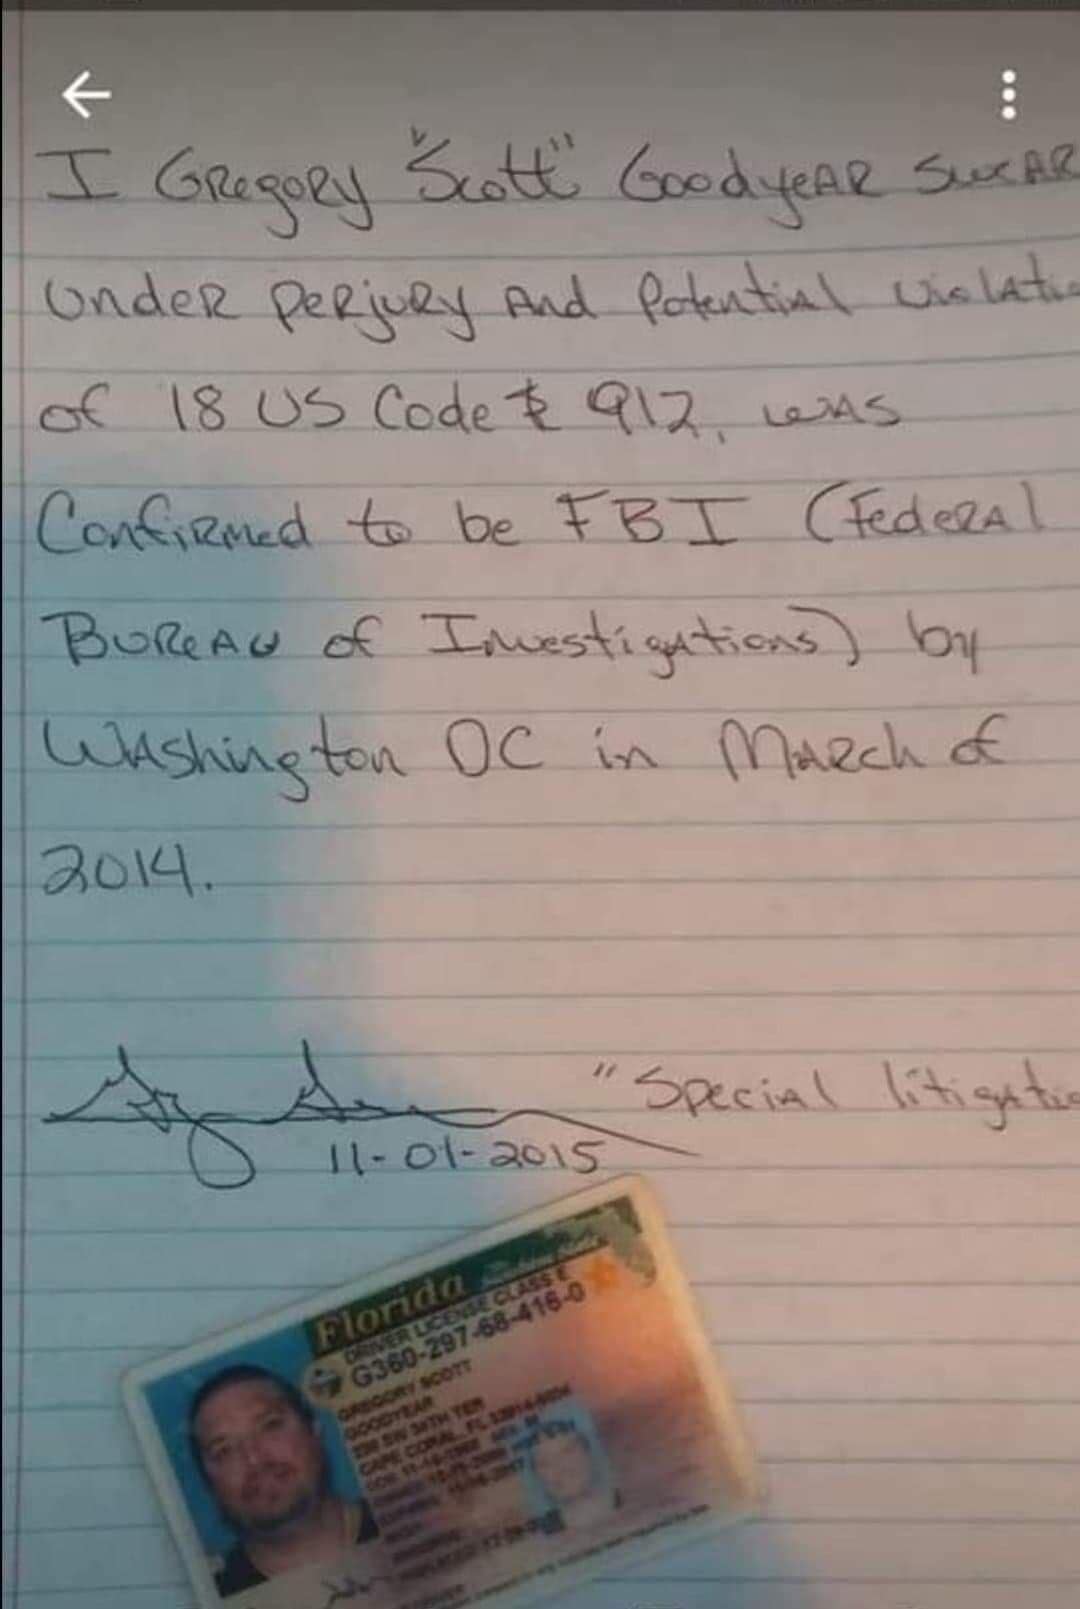 I GRegoRy "Scott" GoodyeAR SweAR
UndeR PeRjuRy And Potential Violatio
of 18 US Code § 912, was
ConfiRmed to be FBI (FedeRAl
BuReAu of Investigations) by
WAshington DC in MaRch of
2014.
"Special litigatio
11-01-2015
Florida
DRIVER LICENSE CLASS E
G360-297-68-416-0
GREGORY SCOTT
GOODYEAR
CAPE CORAL, FL